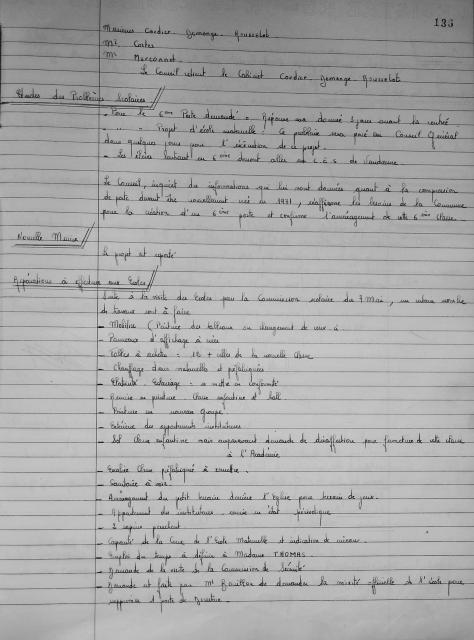 136
Messieurs Cordier - Demange - Rousselot
Mr Cortes
Mr Marconnet
Le Conseil retient le Cabinet Cordier - Demange - Rousselot
Etudes des Problèmes Scolaires
- Pour le 6ème Poste demandé = Réponse sera donnée 3 jours avant la rentrée
- " " - Projet d'école maternelle : Ce problème sera posé au Conseil Général
dans quelques jours pour l'exécution de ce projet.
- Les élèves partant en 6ème devront aller au C.E.S de
Le Conseil, inquiet des informations qui lui sont données quant à la compression
de poste devant être nouvellement créé en 1971, réaffirme les besoins de la Commune
pour la création d'un 6ème poste et confirme l'aménagement de cette 6ème classe.
Nouvelle Mairie
Le projet est reporté
Réparations à effectuer aux Ecoles
Suite à la visite des Ecoles par la Commission scolaire du 7 Mai, un certain nombre
de travaux sont à faire
- Mobilier (Peinture des tableaux ou changement de ceux-ci
- Panneaux d'affichage à créer
- Tables à acheter = 10 + celles de la nouvelle classe
- Chauffage dans maternelle et préfabriquées
- Electricité - Eclairage = à mettre en conformité
- Remise en peinture - Classe enfantine et hall
- Peinture en nouveau groupe
- Extérieur des appartements instituteurs
- Sol Classe enfantine mais auparavant demande de désaffection pour fermeture de cette classe
à l'Académie
- Escalier Classe préfabriqué à remettre
- Sanitaire à voir
- Aménagement du petit terrain derrière l'église pour terrain de jeux.
- Appartement des instituteurs - remise en état périodique
- 2 sapins penchent
- Capacité de la Cuve de l'Ecole Maternelle et indication de niveau
- Emploi du temps à définir à Madame THOMAS
- Demande de la visite de la Commission de Sécurité
- Demande est faite par Mr de demander la mixité officielle de l'école pour
supprimer 1 poste de Directrice.